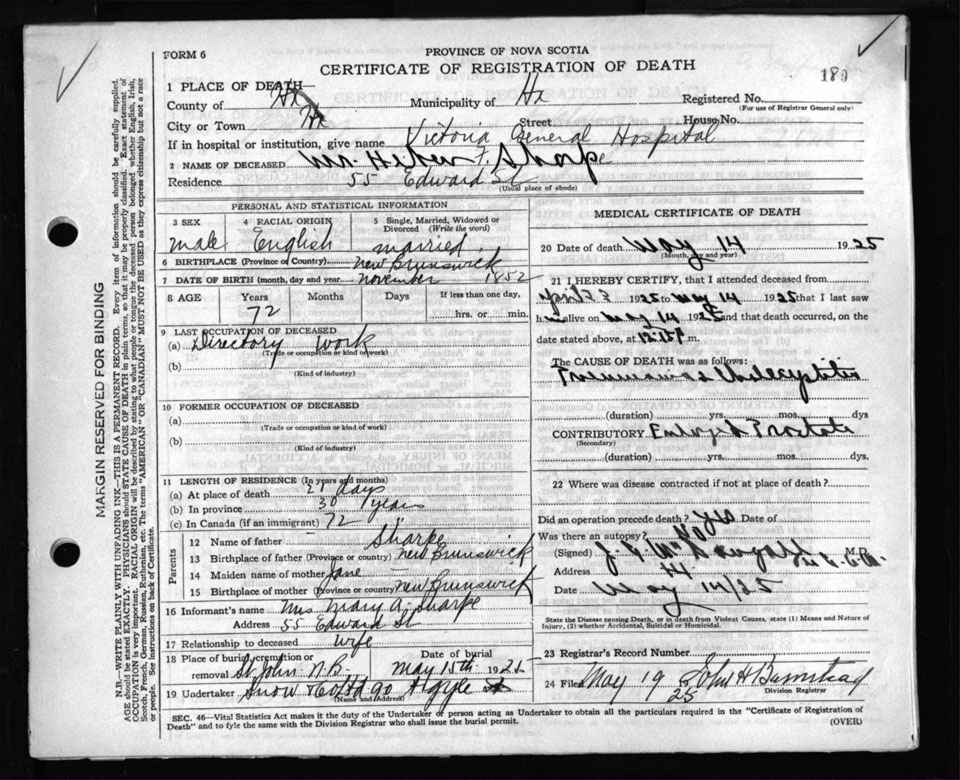 FORM 6
PROVINCE OF NOVA SCOTIA
CERTIFICATE OF REGISTRATION OF DEATH
189
1 PLACE OF DEATH—
County of Hx Municipality of Hx Registered No.
(For use of Registrar General only)
City or Town Hx Street House No.
If in hospital or institution, give name Victoria General Hospital
2 NAME OF DECEASED Mr. Heber F. Sharpe
Residence 55 Edward St
(Usual place of abode)
PERSONAL AND STATISTICAL INFORMATION
3 SEX 4 RACIAL ORIGIN 5 Single, Married, Widowed or Divorced (Write the word)
male English married
6 BIRTHPLACE (Province or Country) New Brunswick
7 DATE OF BIRTH (month, day and year) November 1852
8 AGE Years Months Days If less than one day,
72 hrs. or min.
9 LAST OCCUPATION OF DECEASED
(a) Directory Work
(Trade or occupation or kind of work)
(b)
(Kind of industry)
10 FORMER OCCUPATION OF DECEASED
(a)
(Trade or occupation or kind of work)
(b)
(Kind of industry)
11 LENGTH OF RESIDENCE (In years and months)
(a) At place of death 21 days
(b) In province 30 years
(c) In Canada (if an immigrant) 72
Parents
12 Name of father Sharpe
13 Birthplace of father (Province or country) New Brunswick
14 Maiden name of mother Jane
15 Birthplace of mother (Province or country) New Brunswick
16 Informant's name Mrs Mary A. Sharpe
Address 55 Edward St
17 Relationship to deceased Wife
18 Place of burial, cremation or removal St John N.B. Date of burial May 15th 1925
19 Undertaker Snow & Co Ltd 90 Argyle St
(Name and Address)
MEDICAL CERTIFICATE OF DEATH
20 Date of death May 14 1925
(Month, day and year)
21 I HEREBY CERTIFY, that I attended deceased from
April 23 1925 to May 14 1925 that I last saw
him alive on May 14 1925 and that death occurred, on
date stated above, at 12.15 P m.
The CAUSE OF DEATH was as follows:
(duration) yrs. mos. dys
CONTRIBUTORY Enlarged Prostate
(Secondary)
(duration) yrs. mos. dys.
22 Where was disease contracted if not at place of death?
Did an operation precede death? yes Date of
Was there an autopsy?
(Signed) M.D.
Address Hx
Date May 14/25
State the Disease causing Death, or in death from Violent Causes, state (1) Means and Nature of Injury, (2) whether Accidental, Suicidal or Homicidal.
23 Registrar's Record Number
24 Filed May 19 25 John H Barnstead
Division Registrar
SEC. 46—Vital Statistics Act makes it the duty of the Undertaker or person acting as Undertaker to obtain all the particulars required in the "Certificate of Registration of
Death" and to fyle the same with the Division Registrar who shall issue the burial permit.
(OVER)
MARGIN RESERVED FOR BINDING
N.B.—WRITE PLAINLY WITH UNFADING INK—THIS IS A PERMANENT RECORD. Every item of information should be carefully supplied.
AGE should be stated EXACTLY. PHYSICIANS should STATE CAUSE OF DEATH in plain terms, so that it may be properly classified. Exact statement of
OCCUPATION is very important. RACIAL ORIGIN will be described by stating to what people or tongue the deceased person belonged whether English, Irish,
Scotch, French, German, Russian, Ruthenian, etc. The terms "AMERICAN" or "CANADIAN" MUST NOT BE USED as they express citizenship but not a race
or people. See instructions on back of Certificate.